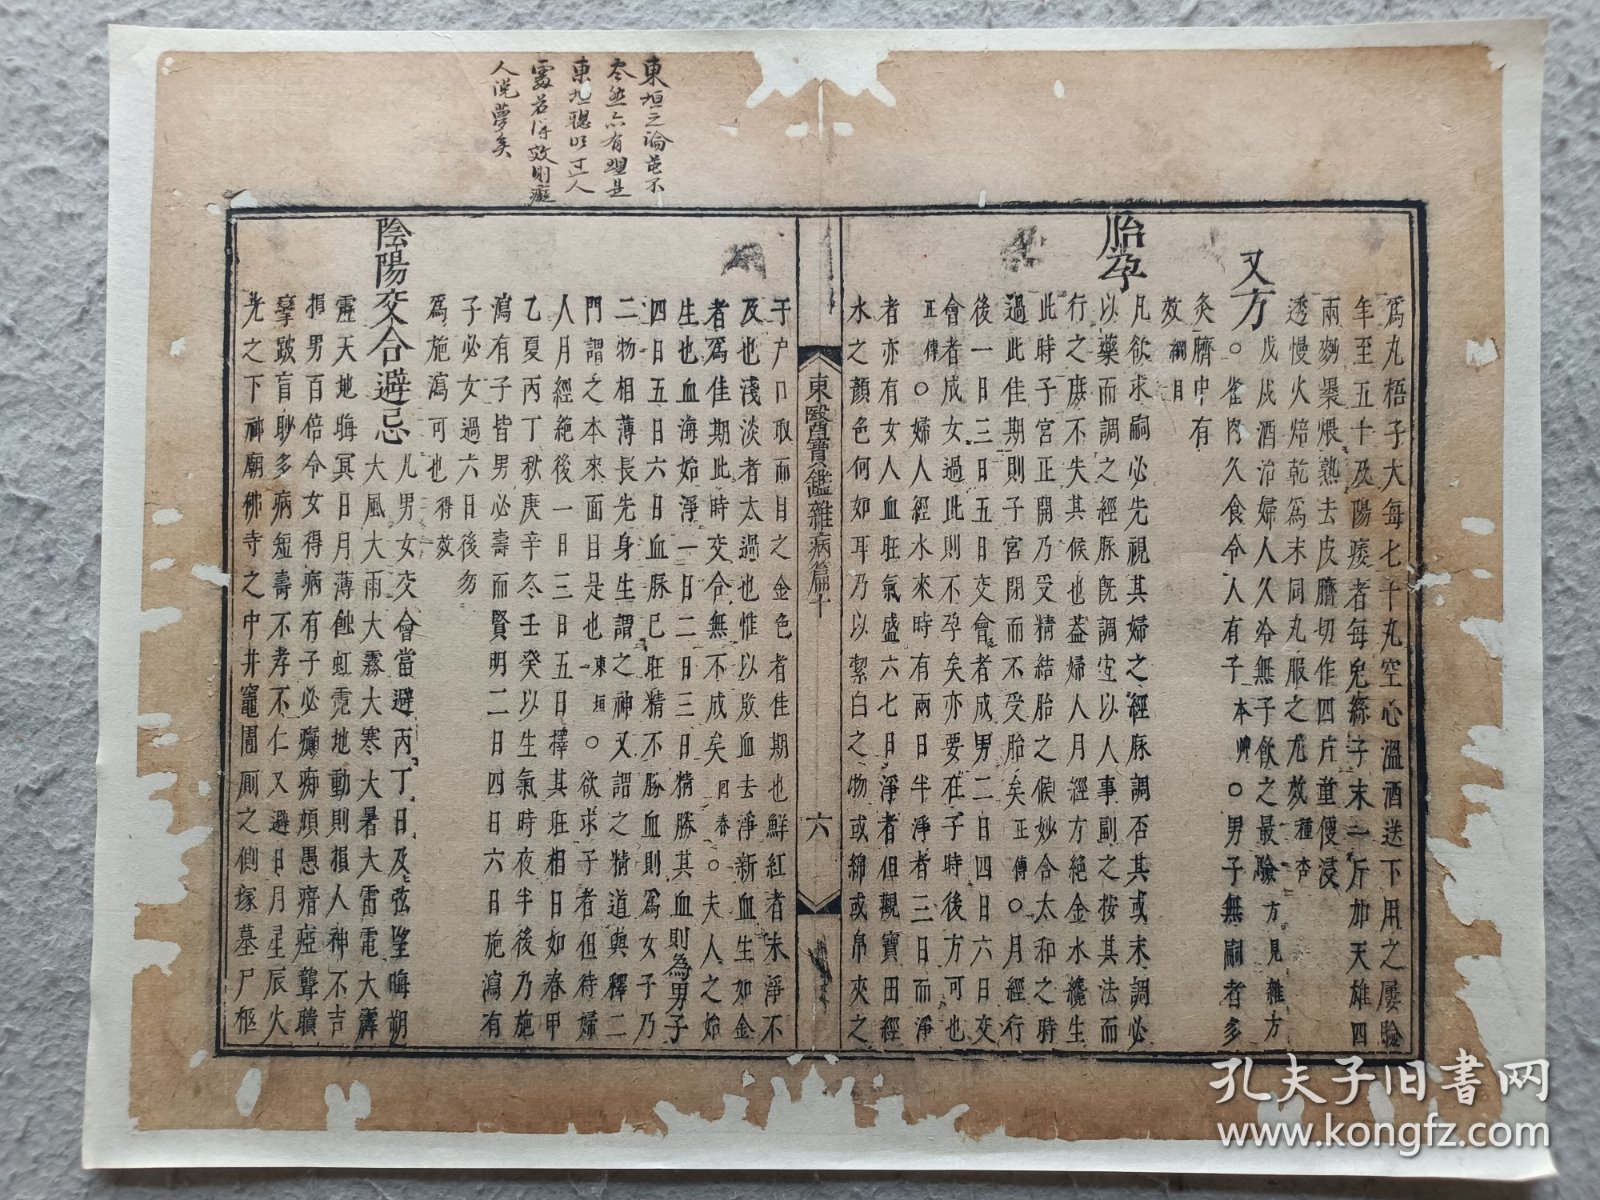 東垣之論並不
盡然亦有
東垣聰明過人
處若
人說夢矣
爲丸梧子大每七十丸空心溫酒送下用之屢驗
年至五十及陽痿者每兔絲子末一斤加天雄四
兩麪裹煨熟去皮臍切作四片童便浸
透慢火焙乾爲末同丸服之尤效種杏
又方
戊戌酒治婦人久冷無子飲之最驗方見雜方
○雀肉久食令人有子本艸○男子無嗣者多
灸臍中有
效綱目
胎孕
凡欲求嗣必先視其婦之經脉調否其或未調必
以藥而調之經脉旣調宜以人事副之按其法而
行之庶不失其候也蓋婦人月經方絕金水纔生
此時子宮正開乃受精結胎之候妙合太和之時
過此佳期則子宮閉而不受胎矣正傳○月經行
後一日三日五日交會者成男二日四日六日交
會者成女過此則不孕矣亦要在子時後方可也
正傳○婦人經水來時有兩日半淨者三日而淨
者亦有女人血旺氣盛六七日淨者但觀寶田經
水之顏色何如耳乃以絜白之物或綿或帛夾之
東醫寶鑑雜病篇十
六
于戶口取而目之金色者佳期也鮮紅者未淨不
及也淺淡者太過也惟以敗血去淨新血生如金
者爲佳期此時交合無不成矣回春○夫人之始
生也血海始淨一日二日三日精勝其血則為男子
四日五日六日血脉已旺精不勝血則爲女子乃
二物相薄長先身生謂之神又謂之精道與釋二
門謂之本來面目是也東垣○欲求子者但待婦
人月經絕後一日三日五日擇其旺相日如春甲
乙夏丙丁秋庚辛冬壬癸以生氣時夜半後乃施
瀉有子皆男必壽而賢明二日四日六日施瀉有
子必女過六日後勿
爲施瀉可也得效
陰陽交合避忌
凡男女交會當避丙丁日及弦望晦朔
大風大雨大霧大寒大暑大雷電大霹
靂天地晦冥日月薄蝕虹霓地動則損人神不吉
損男百倍令女得病有子必癲癡頑愚瘖瘂聾聵
攣跛盲眇多病短壽不孝不仁又避日月星辰火
光之下神廟佛寺之中井竈圊廁之側塚墓尸柩
孔夫子旧書网
www.kongfz.com